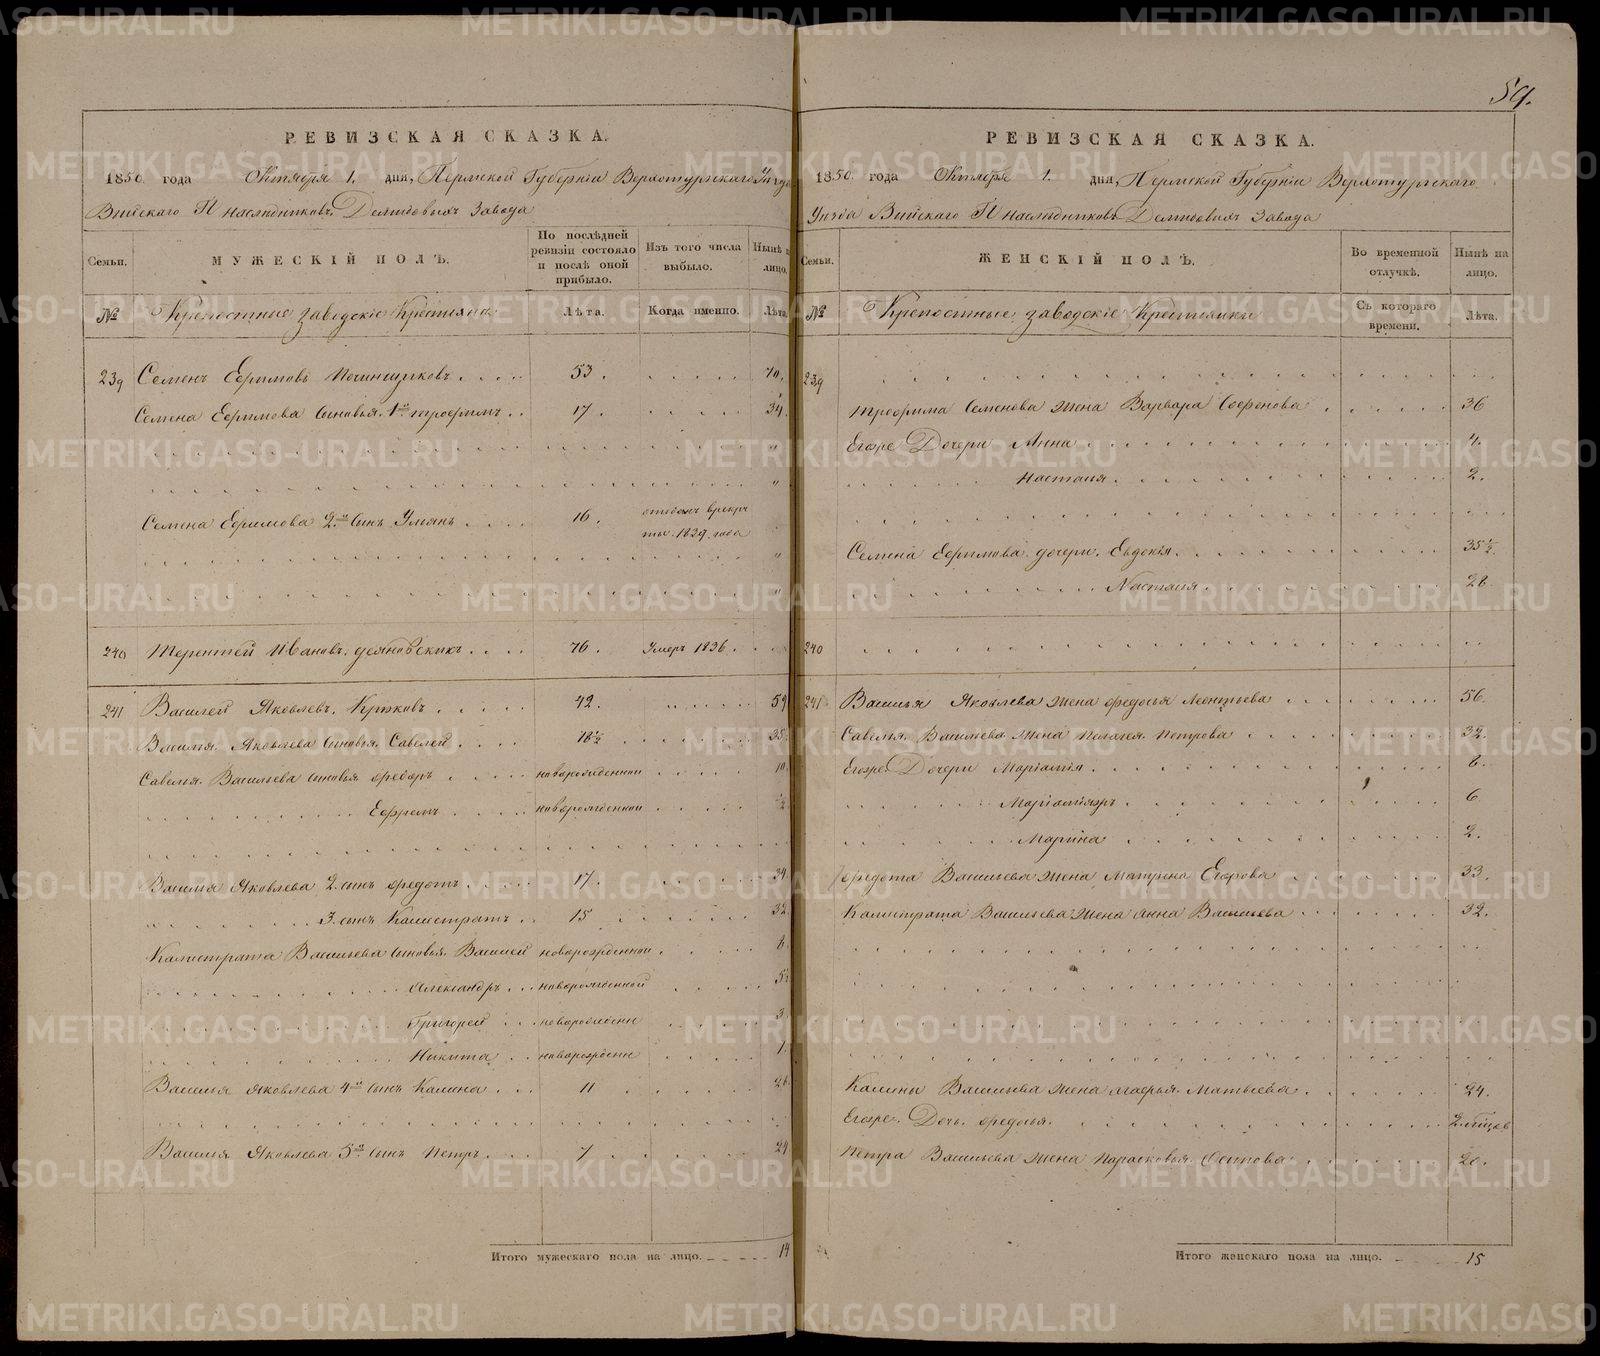 59.
РЕВИЗСКАЯ СКАЗКА.
1850. года Октября 1. дня, Пермской Губернiи Верхотурскаго Уѣзда
Выйскаго Гг. наслѣдниковъ Демидовыхъ Завода
Семьи. МУЖЕСКIЙ ПОЛЪ. По послѣдней ревизiи состояло и послѣ оной прибыло. Изъ того числа выбыло. Нынѣ на лицо.
№ Крепостные заводскiе Крестьяне Лѣта. Когда именно. Лѣта.
239 Семенъ Ефимовъ Починщиковъ 53. 70.
Семена Ефимова сыновья. 1й Трофимъ 17. 34.
Семена Ефимова 2й сынъ Ульянъ 16. отданъ в рекруты 1839. года
240 Терентей Ивановъ 76. Умеръ 1836.
241 Василей Яковлевъ. 42. 59
Василья Яковлева сыновья. Савелей 18½ 35.
Савелья Васильева сыновья Федоръ новорожденной 10.
Ефремъ новорожденной ½
Василья Яковлева 2. сынъ Федотъ 17. 34.
3. сынъ Калистратъ 15 32.
Калистрата Васильева сыновья. Василей новорожденной 8.
Александръ новорожденной
Григорей новорожденн 3.
Никита новорожденн 1.
Василья Яковлева 4й сынъ Калина 11
Василья Яковлева 5й сынъ Петръ 7 24
Итого мужескаго пола на лицо. 14
РЕВИЗСКАЯ СКАЗКА.
1850. года Октября 1. дня, Пермской Губернiи Верхотурскаго
Уѣзда Выйскаго Гг. наслѣдниковъ Демидовыхъ Завода
Семьи. ЖЕНСКIЙ ПОЛЪ. Во временной отлучкѣ. Нынѣ на лицо.
№ Крепостные заводскiе Крестьянки Съ котораго времени. Лѣта.
239
Трофима Семенова жена Варвара Софонова 36
Егоже Дочери Анна 4.
Настасия 2.
Семена Ефимова дочери. Евдокiя 35½
Настасия 28.
240
241 Василья Яковлева жена Федосья Леонтьева 56.
Савелья Васильева жена Пелагея Петрова 32.
Егоже Дочери 8.
6
Марина 2.
Федота Васильева жена Матрена Егорова 33.
Калистрата Васильева жена Анна Васильева 32.
Калины Васильева жена Марья Матвѣева 24.
Егоже Дочь Федосья
Петра Васильева жена Парасковья Осипова 20.
Итого женскаго пола на лицо. 15
METRIKI.GASO-URAL.RU